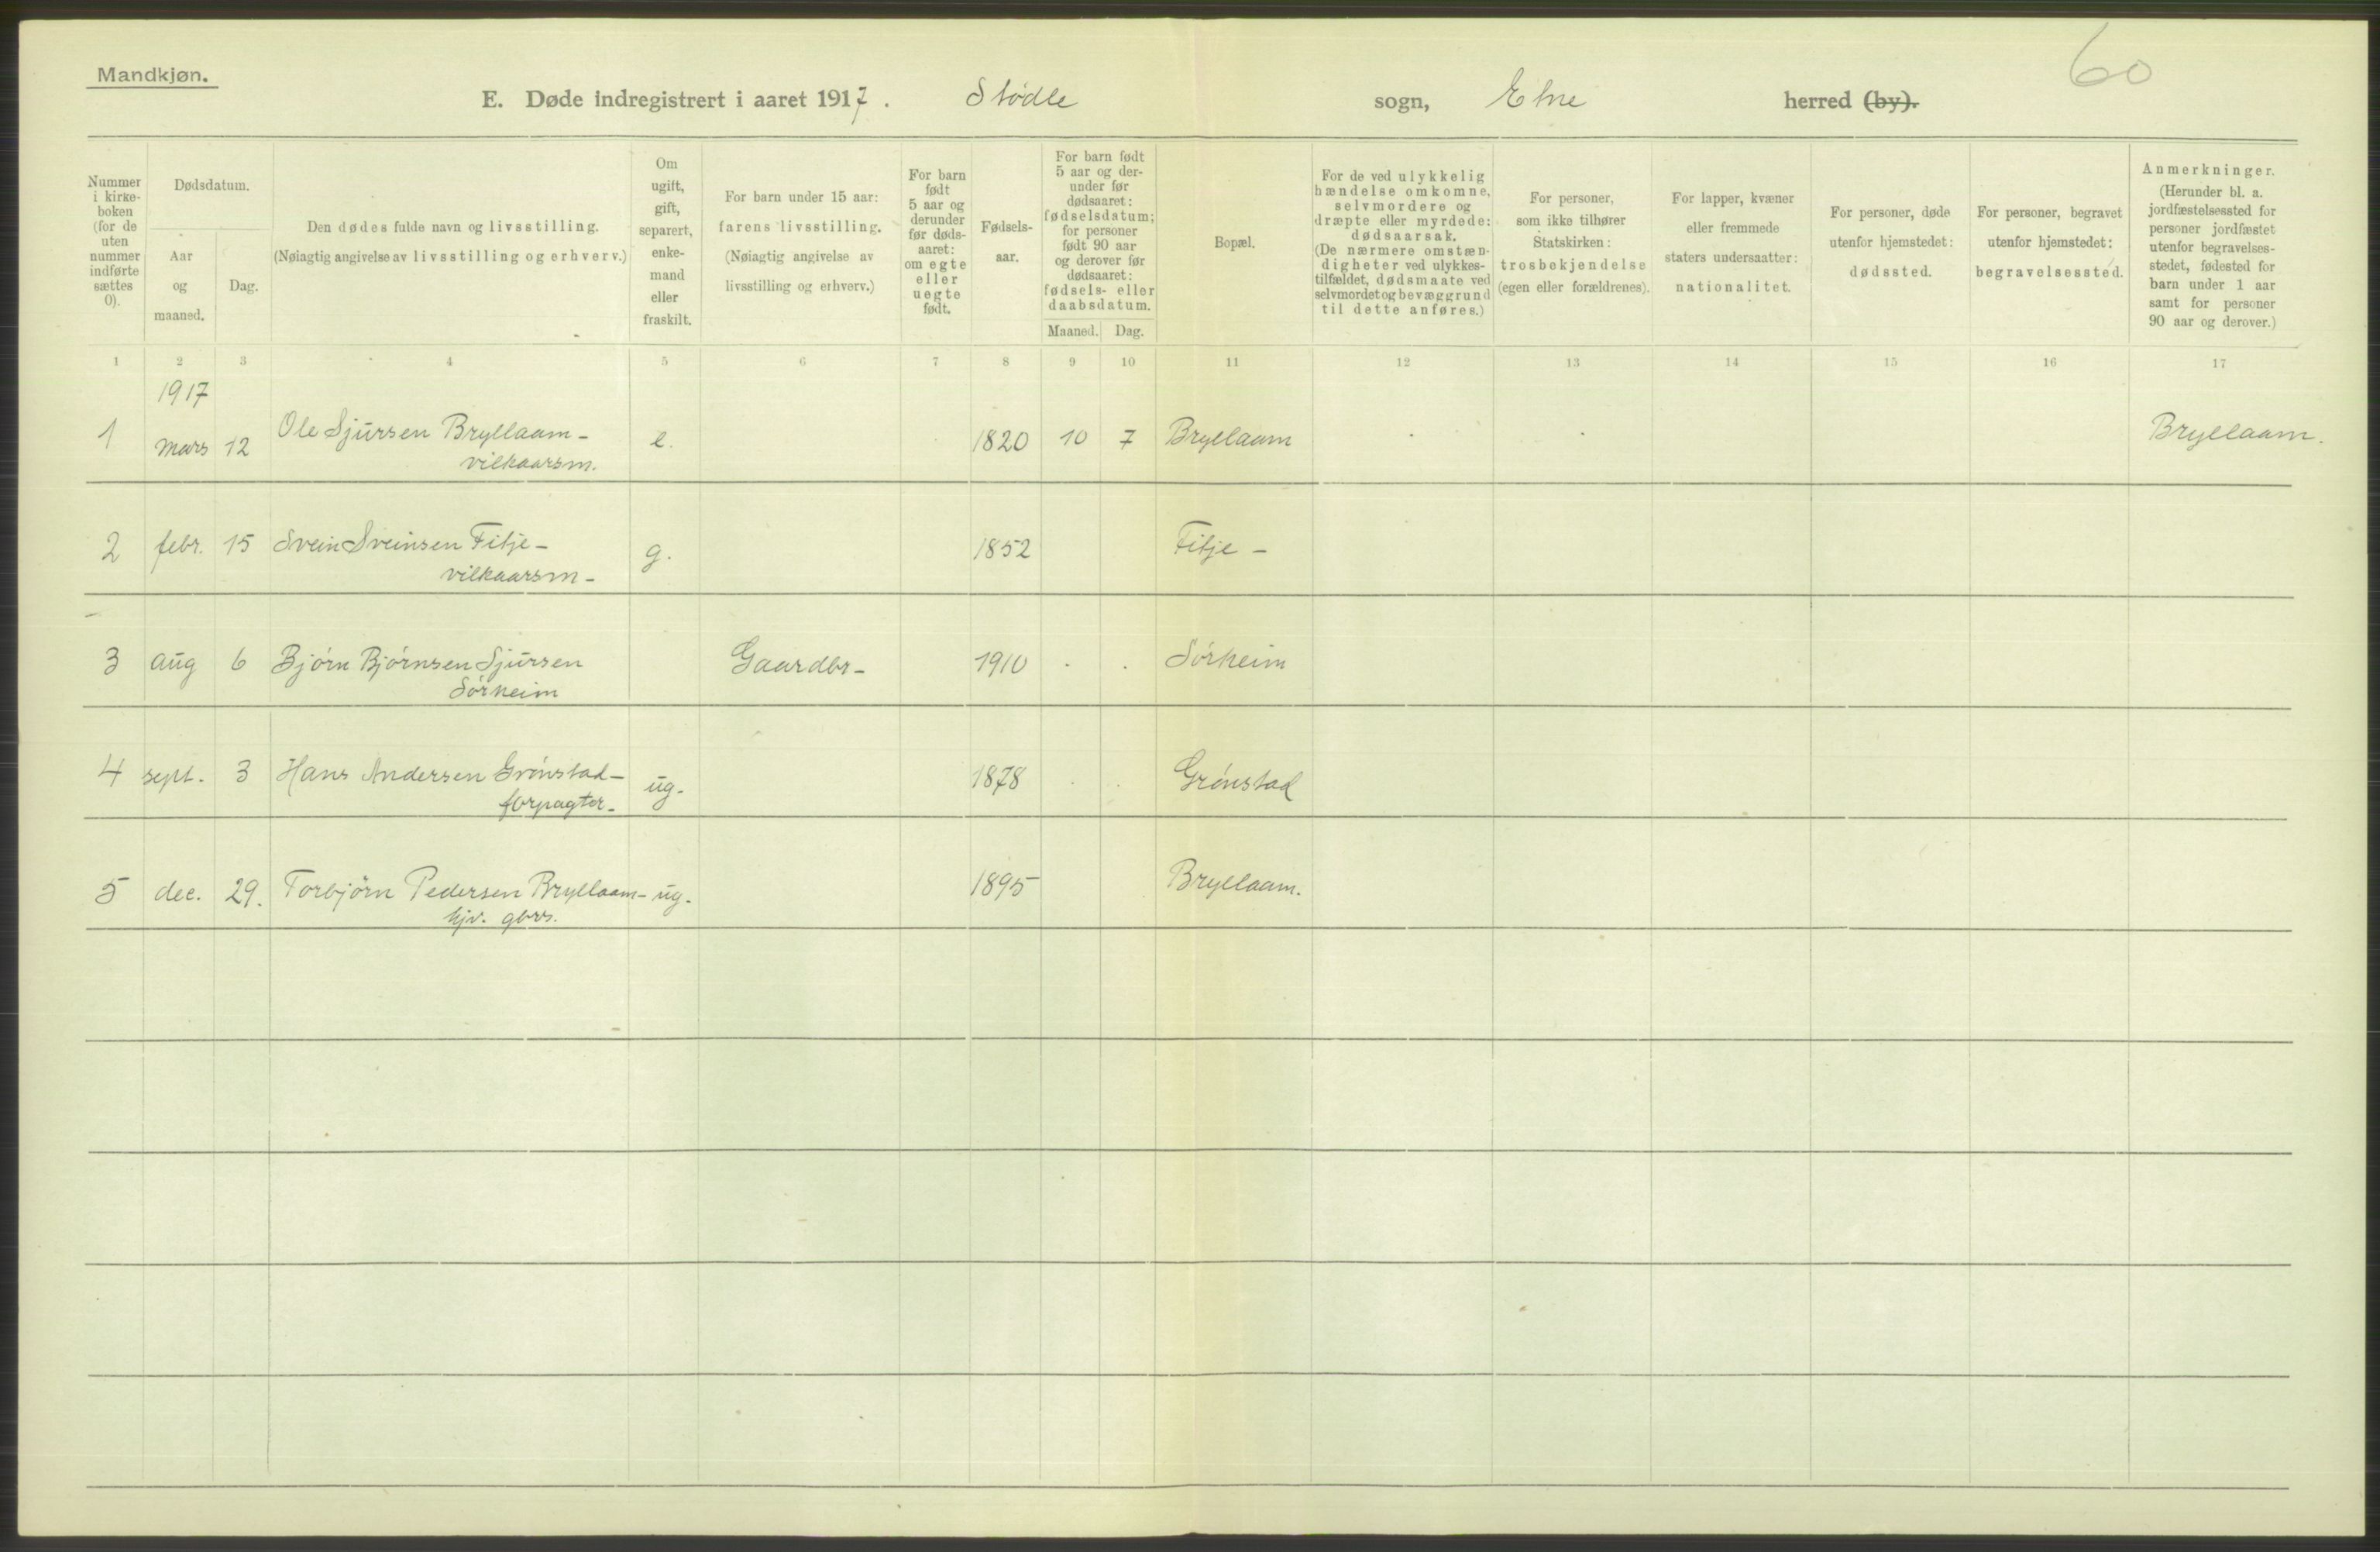 Mandkjøn.
60
E. Døde indregistrert i aaret 1917. Stødle sogn, Etne herred (by).
Nummer i kirke-boken (for de uten nummer indførte sættes 0).
Dødsdatum.
Aar og maaned.
Dag.
Den dødes fulde navn og livsstilling.
(Nøiagtig angivelse av livsstilling og erhverv.)
Om ugift, gift, separert, enke-mand eller fraskilt.
For barn under 15 aar:
farens livsstilling.
(Nøiagtig angivelse av livsstilling og erhverv.)
For barn født 5 aar og derunder før døds-aaret: om egte eller uegte født.
Fødsels-aar.
For barn født 5 aar og der-under før dødsaaret: fødselsdatum; for personer født 90 aar og derover før dødsaaret: fødsels- eller daabsdatum.
Maaned. Dag.
Bopæl.
For de ved ulykkelig hændelse omkomne, selvmordere og dræpte eller myrdede: dødsaarsak.
(De nærmere omstæn-digheter ved ulykkes-tilfældet, dødsmaate ved selvmordet og bevæggrund til dette anføres.)
For personer, som ikke tilhører Statskirken: trosbekjendelse (egen eller forældrenes).
For lapper, kvæner eller fremmede staters undersaatter: nationalitet.
For personer, døde utenfor hjemstedet: dødssted.
For personer, begravet utenfor hjemstedet: begravelsessted.
Anmerkninger.
(Herunder bl. a. jordfæstelsessted for personer jordfæstet utenfor begravelses-stedet, fødested for barn under 1 aar samt for personer 90 aar og derover.)
1 2 3 4 5 6 7 8 9 10 11 12 13 14 15 16 17
1917
1 mars 12 Ole Sjursen Bryllaam- e. 1820 10 7 Bryllaam Bryllaam.
vilkaarsm.
2 febr. 15 Svein Sveinsen Fitje- g. 1852 Fitje -
vilkaarsm-
3 aug 6 Bjørn Bjørnsen Sjursen Gaardbr- 1910 Sørheim
Sørheim
4 sept. 3 Hans Andersen Grønstad- ug. 1878 Grønstad
forpagter-
5 dec. 29. Torbjørn Pedersen Bryllaam- ug. 1895 Bryllaam.
hjv. gbrs.